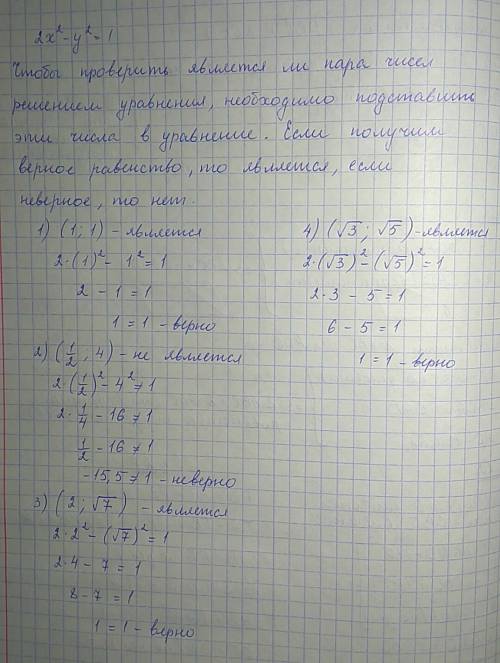 2x² - y² = 1
Чтобы проверить является ли пара чисел
решением уравнения, необходимо подставить
эти числа в уравнение. Если получим
верное равенство, то является, если
неверное, то нет.
1) (1; 1) - является
2·(1)² - 1² = 1
2 - 1 = 1
1 = 1 - верно
2) (1/2, 4) - не является
2·(1/2)² - 4² ≠ 1
2·1/4 - 16 ≠ 1
1/2 - 16 ≠ 1
-15,5 ≠ 1 - неверно
3) (2; √7) - является
2·2² - (√7)² = 1
2·4 - 7 = 1
8 - 7 = 1
1 = 1 - верно
4) (√3; √5) - является
2·(√3)² - (√5)² = 1
2·3 - 5 = 1
6 - 5 = 1
1 = 1 - верно